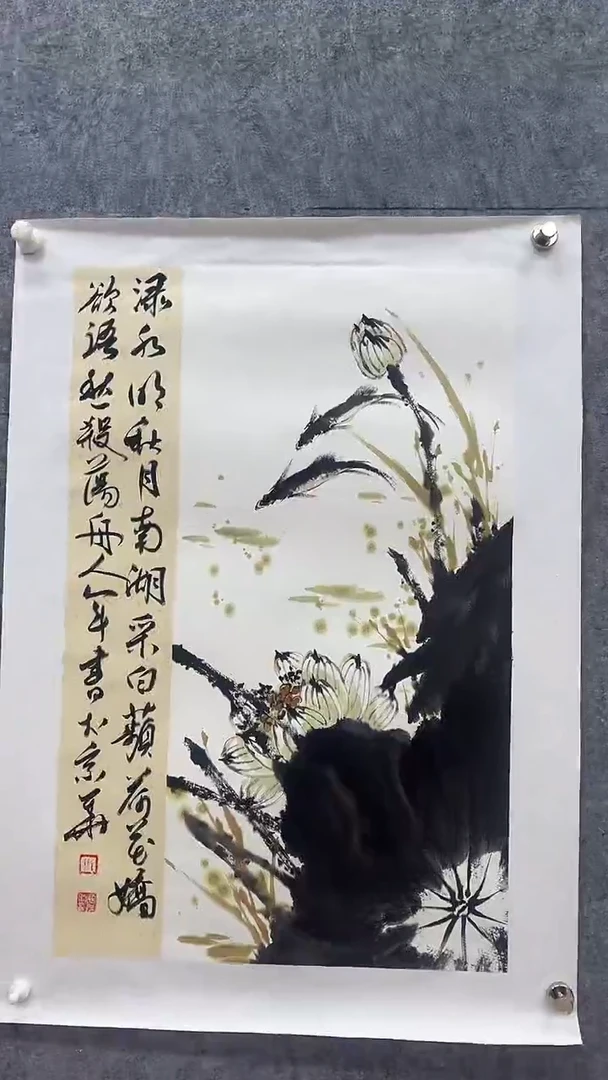 渌水明秋月南湖采白蘋荷花嬌
欲語愁殺蕩舟人年書於京華